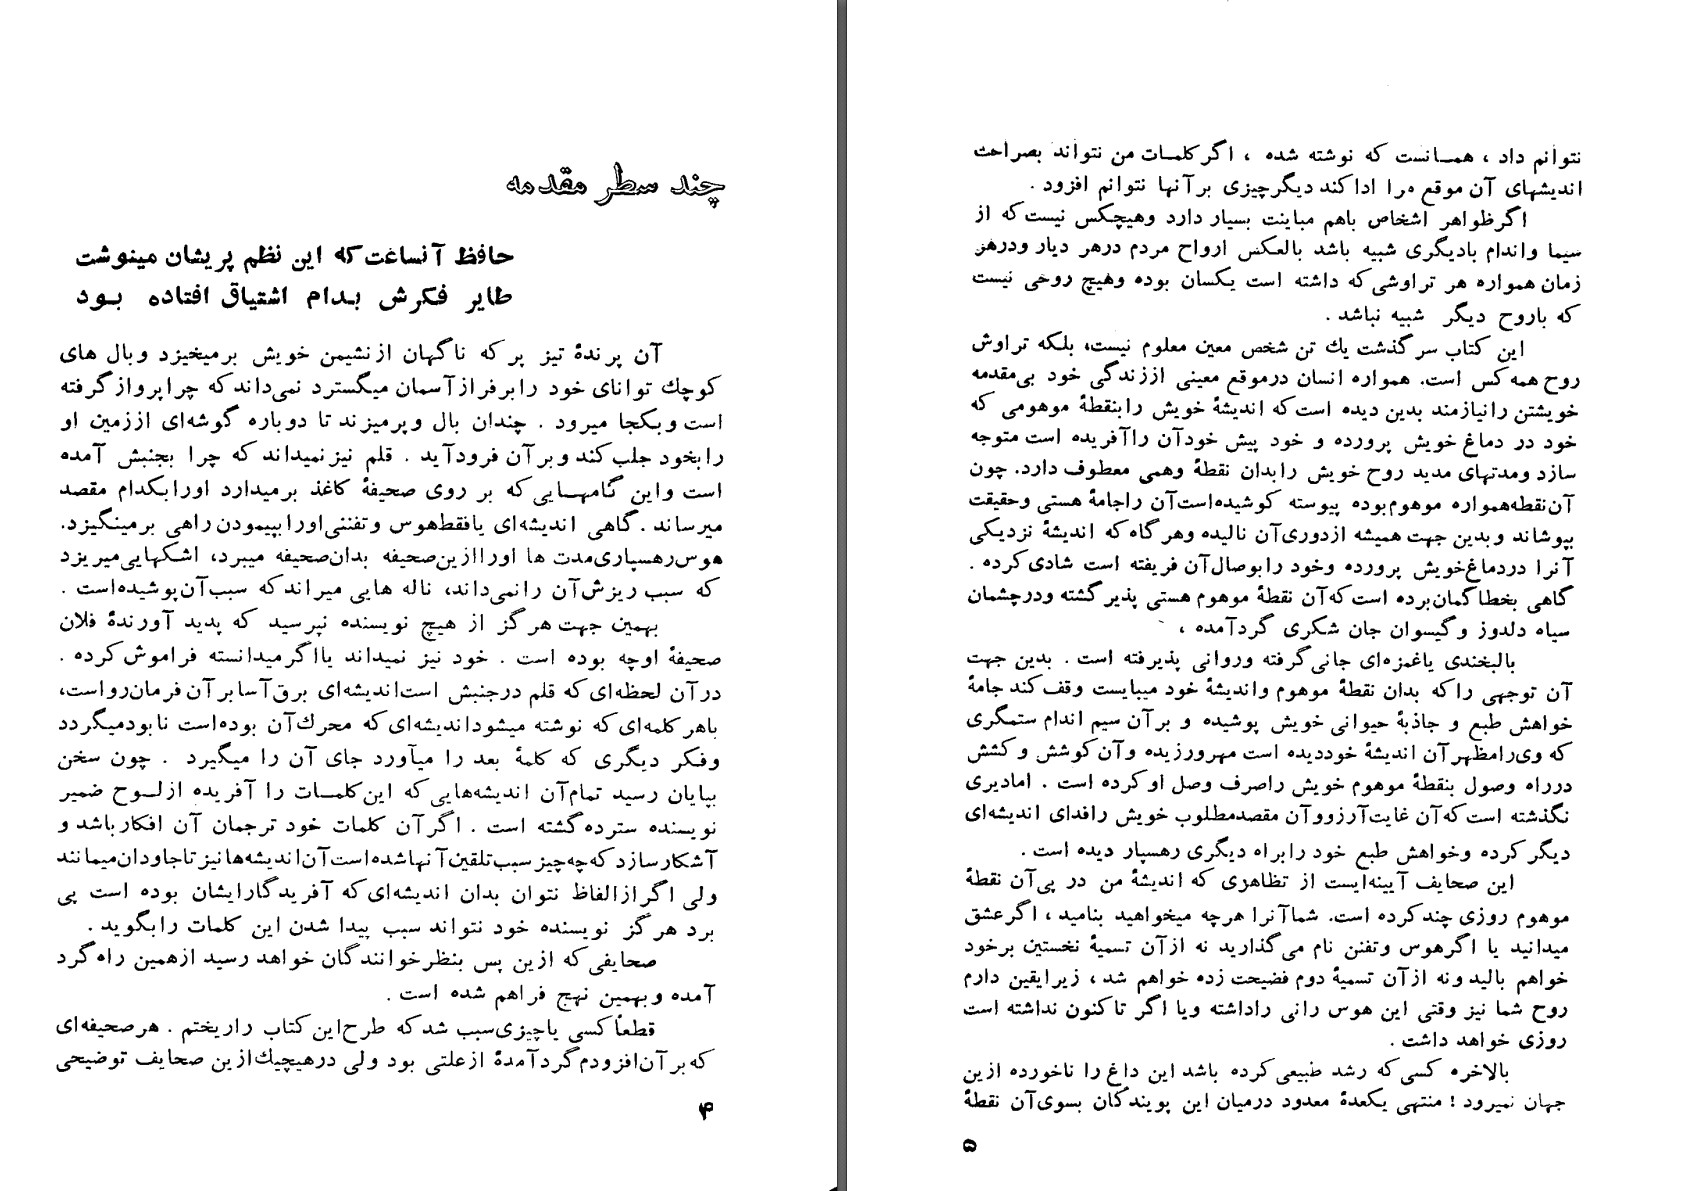 چند سطر مقدمه
حافظ آنساعت که این نظم پریشان مینوشت
طایر فکرش بدام اشتیاق افتاده بود
آن پرندهٔ تیز پر که ناگهان از نشیمن خویش برمیخیزد و بال های
کوچك توانای خود را بر فراز آسمان میگسترد نمی‌داند که چرا پرواز گرفته
است و بکجا میرود . چندان بال و پر میزند تا دوباره گوشه‌ای از زمین او
را بخود جلب کند و بر آن فرود آید . قلم نیز نمیداند که چرا بجنبش آمده
است و این گامهایی که بر روی صحیفهٔ کاغذ برمیدارد او را بکدام مقصد
میرساند . گاهی اندیشه‌ای یا فقط هوس و تفننی او را بپیمودن راهی برمینگیزد.
هوس رهسپاری مدت ها او را ازین صحیفه بدان صحیفه میبرد، اشکهایی میریزد
که سبب ریزش آن را نمی‌داند، ناله هایی میراند که سبب آن پوشیده است .
بهمین جهت هرگز از هیچ نویسنده نپرسید که پدید آورندهٔ فلان
صحیفهٔ او چه بوده است . خود نیز نمیداند یا اگر میدانسته فراموش کرده .
در آن لحظه‌ای که قلم در جنبش است اندیشه‌ای برق آسا بر آن فرمان رواست،
با هر کلمه‌ای که نوشته میشود اندیشه‌ای که محرك آن بوده است نابود میگردد
و فکر دیگری که کلمهٔ بعد را میآورد جای آن را میگیرد . چون سخن
بپایان رسید تمام آن اندیشه‌هایی که این کلمات را آفریده از لوح ضمیر
نویسنده سترده گشته است . اگر آن کلمات خود ترجمان آن افکار باشد و
آشکار سازد که چه چیز سبب تلقین آنها شده است آن اندیشه‌ها نیز تا جاودان میمانند
ولی اگر از الفاظ نتوان بدان اندیشه‌ای که آفریدگار ایشان بوده است پی
برد هرگز نویسنده خود نتواند سبب پیدا شدن این کلمات را بگوید .
صحایفی که ازین پس بنظر خوانندگان خواهد رسید از همین راه گرد
آمده و بهمین نهج فراهم شده است .
قطعاً کسی یا چیزی سبب شد که طرح این کتاب را ریختم . هر صحیفه‌ای
که بر آن افزودم گرد آمدهٔ از علتی بود ولی در هیچیك ازین صحایف توضیحی
۴
نتوانم داد ، همانست که نوشته شده ، اگر کلمات من نتواند بصراحت
اندیشهای آن موقع مرا ادا کند دیگر چیزی بر آنها نتوانم افزود .
اگر ظواهر اشخاص باهم مباینت بسیار دارد و هیچکس نیست که از
سیما و اندام با دیگری شبیه باشد بالعکس ارواح مردم در هر دیار و در هر
زمان همواره هر تراوشی که داشته است یکسان بوده و هیچ روحی نیست
که با روح دیگر شبیه نباشد .
این کتاب سرگذشت یك تن شخص معین معلوم نیست، بلکه تراوش
روح همه کس است. همواره انسان در موقع معینی از زندگی خود بی مقدمه
خویشتن را نیازمند بدین دیده است که اندیشهٔ خویش را بنقطهٔ موهومی که
خود در دماغ خویش پرورده و خود پیش خود آن را آفریده است متوجه
سازد و مدتهای مدید روح خویش را بدان نقطهٔ وهمی معطوف دارد. چون
آن نقطه همواره موهوم بوده پیوسته کوشیده است آن را جامهٔ هستی و حقیقت
بپوشاند و بدین جهت همیشه از دوری آن نالیده و هر گاه که اندیشهٔ نزدیکی
آنرا در دماغ خویش پرورده و خود را بوصال آن فریفته است شادی کرده .
گاهی بخطا گمان برده است که آن نقطهٔ موهوم هستی پذیر گشته و در چشمان
سیاه دلدوز و گیسوان جان شکری گرد آمده ،
با لبخندی یا غمزه‌ای جانی گرفته و روانی پذیرفته است . بدین جهت
آن توجهی را که بدان نقطهٔ موهوم و اندیشهٔ خود میبایست وقف کند جامهٔ
خواهش طبع و جاذبهٔ حیوانی خویش پوشیده و بر آن سیم اندام ستمگری
که وی را مظهر آن اندیشهٔ خود دیده است مهر ورزیده و آن کوشش و کشش
در راه وصول بنقطهٔ موهوم خویش را صرف وصل او کرده است . اما دیری
نگذشته است که آن غایت آرزو و آن مقصد مطلوب خویش را فدای اندیشه‌ای
دیگر کرده و خواهش طبع خود را براه دیگری رهسپار دیده است .
این صحایف آیینه‌ایست از تظاهری که اندیشهٔ من در پی آن نقطهٔ
موهوم روزی چند کرده است. شما آنرا هر چه میخواهید بنامید ، اگر عشق
میدانید یا اگر هوس و تفنن نام می گذارید نه از آن تسمیهٔ نخستین بر خود
خواهم بالید و نه از آن تسمیهٔ دوم فضیحت زده خواهم شد ، زیرا یقین دارم
روح شما نیز وقتی این هوس رانی را داشته و یا اگر تا کنون نداشته است
روزی خواهد داشت .
بالاخره کسی که رشد طبیعی کرده باشد این داغ را ناخورده ازین
جهان نمیرود ! منتهی یکعدهٔ معدود درمیان این پویندگان بسوی آن نقطهٔ
۵